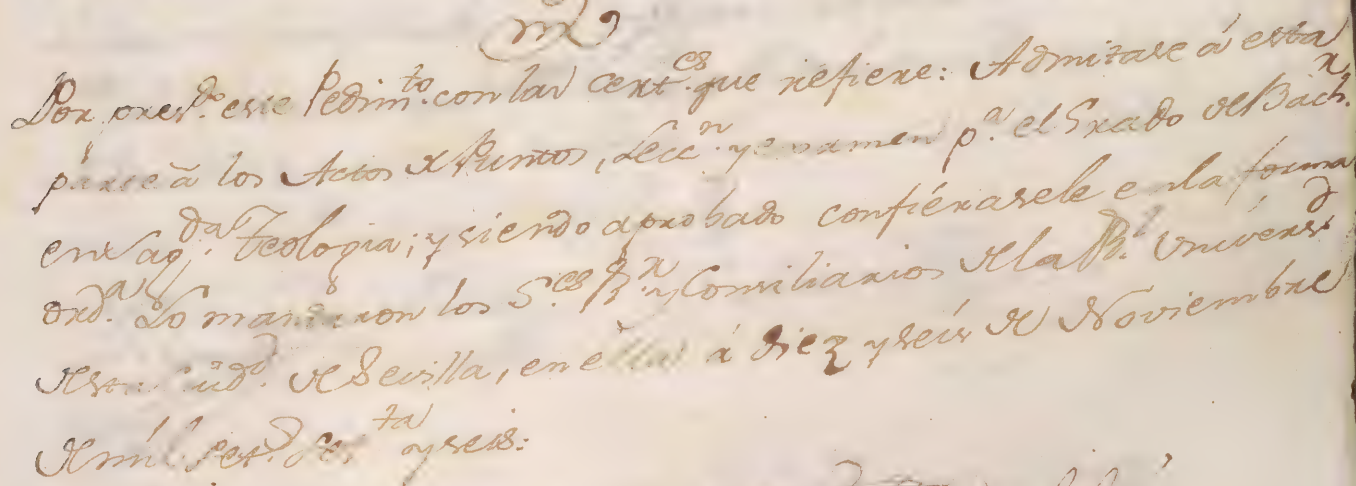 Por pres.do este Pedim.to con las cert.es que refiere: Admitase á esta
parte à los Actos de Puntos, Lecc.n y examen p.a el Grado de Bach.r
en Sag.da Teologia; y siendo aprobado confiérasele en la forma
ord.a Lo mandaron los S.res R.r y Consiliarios de la R.l Univers.d
desta Ciud.d de Sevilla, en ella á diez y seis de Noviembre
de mil set.s y seis.